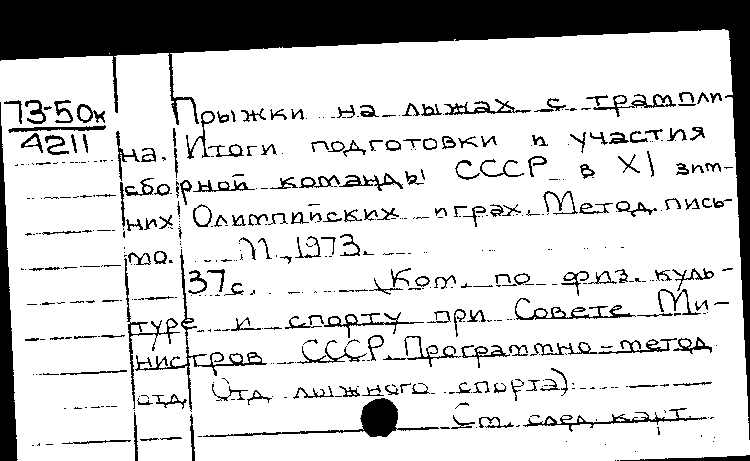 73-50к
4211
Прыжки на лыжах с трампли-
на. Итоги подготовки и участия
сборной команды СССР в XI зим-
них Олимпийских играх. Метод. пись-
мо. М., 1973.
37с. (Ком. по физ. куль-
туре и спорту при Совете Ми-
нистров СССР. Программно-метод
отд. Отд лыжного спорта).
См. след. карт.